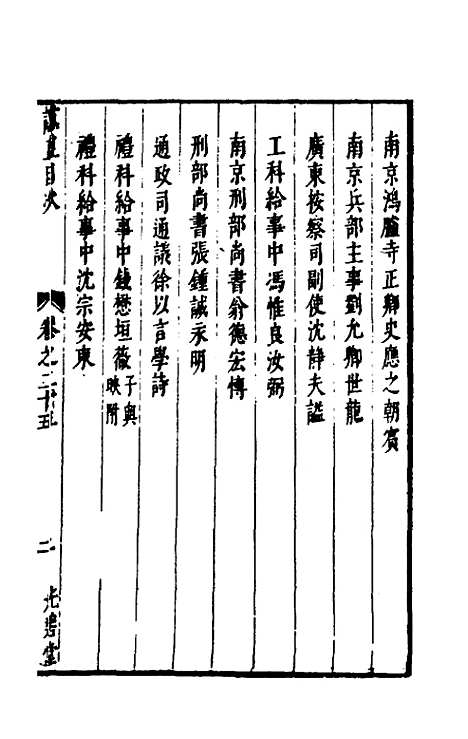 南京鴻臚寺正卿史應之朝賓
南京兵部主事劉允卿世龍
廣東按察司副使沈靜夫謐
工科給事中馮惟良汝弼
南京刑部尚書翁德宏溥
刑部尚書張鍾誠永明
通政司通議徐以言學詩
禮科給事中錢懋垣薇子與映附
禮科給事中沈宗安東
目次
卷之二十五
二
光碧堂